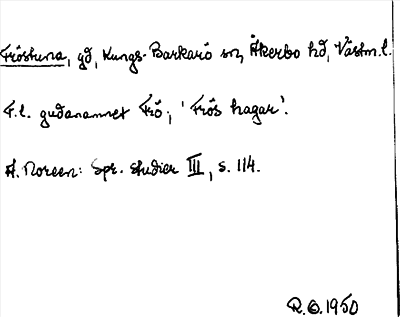 Fröstuna, gd, Kungs-Barkarö sn, Åkerbo hd, Västm.l.
F.l. gudanamnet Frö; 'Frös hagar'.
A. Noreen: Spr. studier III, s. 114.
R.O. 1950